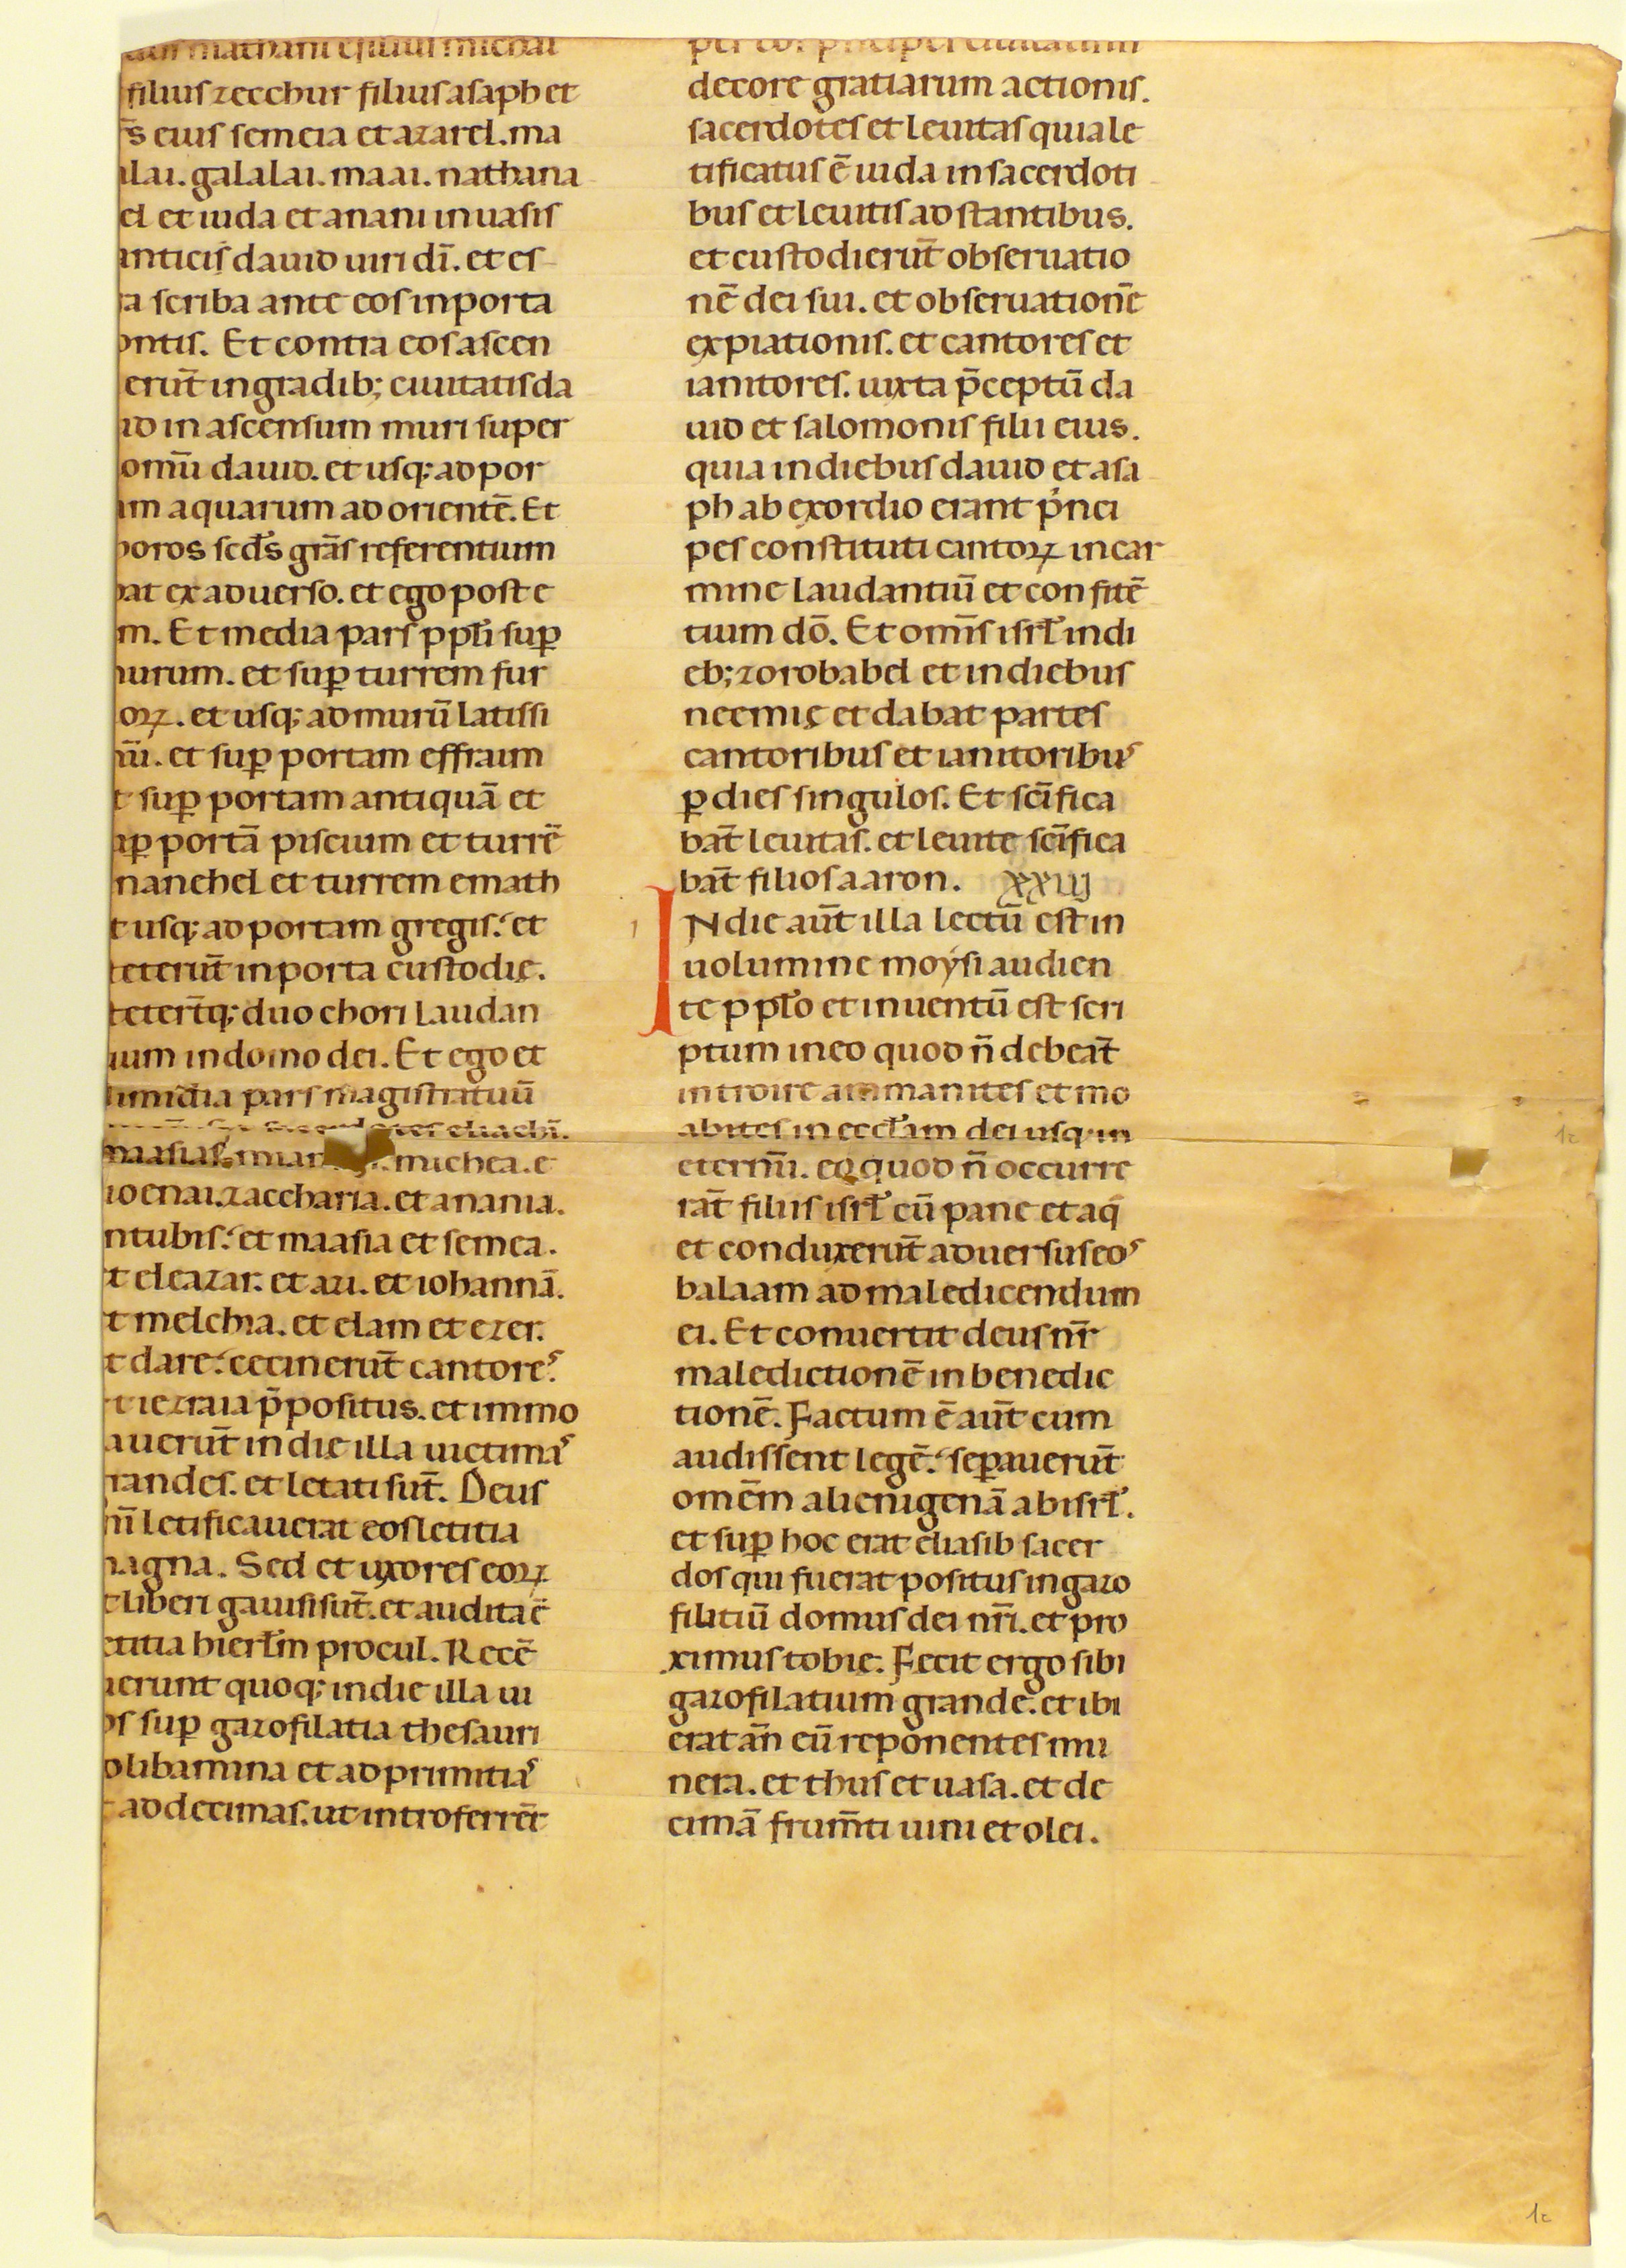 mathani filius michai
filius zecchur filius asaph et
s̄ eius semeia et azarel. ma
lai. galalai. maai. nathana
el et iuda et anani in uasis
anticis dauid uiri dī. et es
a scriba ante eos in porta
ontis. Et contra eos ascen
erūt in gradib; ciuitatis da
id in ascensum muri super
omū dauid. et usq; ad por
am aquarum ad orientē. Et
horos scd̄s grās referentium
bat ex aduerso. et ego post e
m. Et media pars ppłi suꝑ
murum. et suꝑ turrem fur
oꝝ. et usq; ad murū latissi
mū. et suꝑ portam effraim
t suꝑ portam antiquā et
uꝑ portā piscium et turrē
nanehel et turrem emath
t usq; ad portam gregis. et
teterūt in porta custodię.
tetert̄q; duo chori laudan
ium in domo dei. Et ego et
dimidia pars magistratuū
eliachī.
maasias. miam michea. e
ioenai. zaccharia. et anania.
n tubis. et maasia et semea.
t eleazar. et azi. et iohannā.
t melchia. et elam et ezer.
t dare. cecinerūt cantores
t iezraia p̄positus. et immo
auerūt in die illa uictimas
randes. et letati sūt. Deus
nī letificauerat eos letitia
magna. Sed et uxores eoꝝ
t liberi gauisi sūt. et audita ē
etitia hierłm procul. Recē
uerunt quoq; in die illa ui
os suꝑ gazofilatia thesauri
d libamina et ad primitias
t ad decimas. ut introferrēt
per eos principes ciuitatum
decore gratiarum actionis.
sacerdotes et leuitas quia le
tificatus ē iuda in sacerdoti
bus et leuitis ad stantibus.
et custodierūt obseruatio
nē dei sui. et obseruationē
expiationis. et cantores et
ianitores. iuxta p̄ceptū da
uid et salomonis filii eius.
quia in diebus dauid et asa
ph ab exordio erant pⁱnci
pes constituti cantoꝝ in car
mine laudantiū et confitē
tium dō. Et omīs isrł in di
eb; zorobabel et in diebus
neemię et dabat partes
cantoribus et ianitoribus
ꝑ dies singulos. Et scīfica
bāt leuitas. et leuite scīfica
bāt filios aaron. xxiij
IN die aūt illa lectū est in
uolumine moẏsi audien
te ppło et inuentū est scri
ptum in eo quod n̄ debeāt
introire ammanites et mo
abites in eccłam dei usq; in
eternū. eo quod n̄ occurre
rāt filiis isrł cū pane et aq̄
et conduxerūt aduersus eos
balaam ad maledicendum
ei. Et conuertit deus nr̄
maledictionē in benedic
tionē. Factum ē aūt cum
audissent legē. seꝑauerūt
omēm alienigenā ab isrł.
et suꝑ hoc erat eliasib sacer
dos qui fuerat positus in gazo
filitiū domus dei nr̄i. et pro
ximus tobię. Fecit ergo sibi
gazofilatium grande. et ibi
erat ān eū reponentes mu
nera. et thus et uasa. et de
cimā frum̄ti uini et olei.
1c
1c